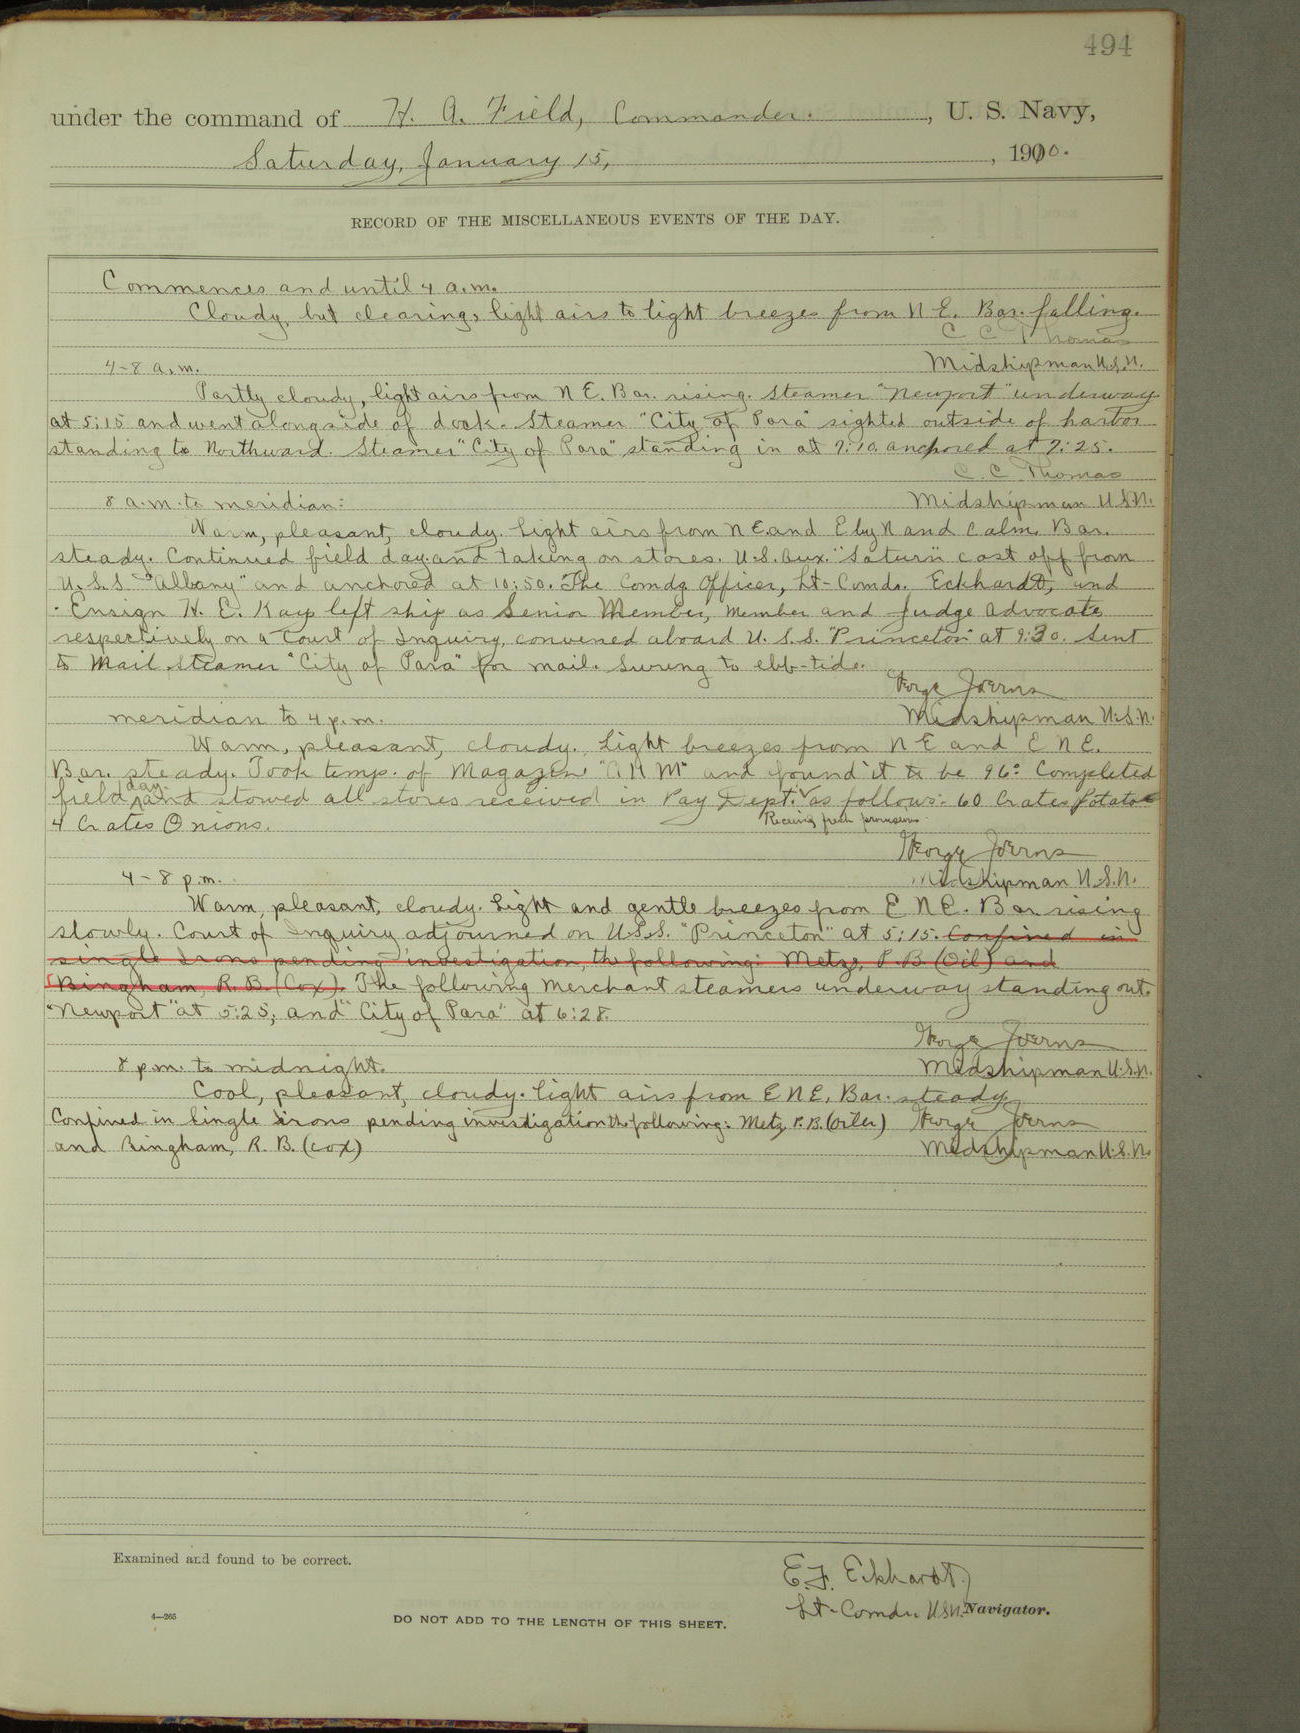 494
under the command of H. A. Field, Commander. , U. S. Navy,
Saturday, January 15, , 1910.
RECORD OF THE MISCELLANEOUS EVENTS OF THE DAY.
Commences and until 4 a.m.
Cloudy, but clearing, light airs to light breezes from N E. Bar. falling.
C. C. Thomas
Midshipman U.S.N.
4-8 a.m.
Partly cloudy, light airs from N E. Bar. rising. Steamer "Newport" underway
at 5:15 and went alongside of dock. Steamer "City of Para" sighted outside of harbor
standing to Northward. Steamer "City of Para" standing in at 7:10. anchored at 7:25.
C. C. Thomas
Midshipman U.S.N.
8 a.m. to meridian:
Warm, pleasant, cloudy. Light airs from N E. and E by N and calm. Bar.
steady. Continued field day and taking on stores. U.S. Aux. "Saturn" cast off from
U.S.S. "Albany" and anchored at 10:50. The Comdg Officer, Lt-Comdr. Eckhardt, and
Ensign H. E. Kays left ship as Senior Member, Member and Judge Advocate,
respectively on a Court of Inquiry, convened aboard U. S. S. "Princeton" at 9:30. Sent
to Mail Steamer "City of Para" for mail. Swung to ebb-tide.
George Joerns
Midshipman U.S.N.
meridian to 4 p.m.
Warm, pleasant, cloudy. Light breezes from N E and E N E.
Bar. steady. Took temp. of Magazine "A H M" and found it to be 96°. Completed
field day and stowed all stores received in Pay Dept. as follows: 60 Crates Potatoes
Receiving fresh provisions
4 Crates Onions.
George Joerns
Midshipman U.S.N.
4-8 p.m.
Warm, pleasant, cloudy. Light and gentle breezes from E N E. Bar rising
slowly. Court of Inquiry adjourned on U.S.S. "Princeton" at 5:15. Confined in
single Irons pending investigation, the following: Metz, P. B. (Oil) and
Bingham, R. B. (Cox). The following Merchant steamers underway standing out.
"Newport" at 5:25, and "City of Para" at 6:28.
George Joerns
Midshipman U.S.N.
8 p.m. to midnight.
Cool, pleasant, cloudy. Light airs from E N E. Bar. steady
Confined in Single Irons pending investigation the following: Metz, P. B. (Oiler)
George Joerns
and Bingham, R. B. (Cox)
Midshipman U.S.N.
Examined and found to be correct.
E. F. Eckhardt,
Lt-Comdr. U.S.N. Navigator.
4—265
DO NOT ADD TO THE LENGTH OF THIS SHEET.